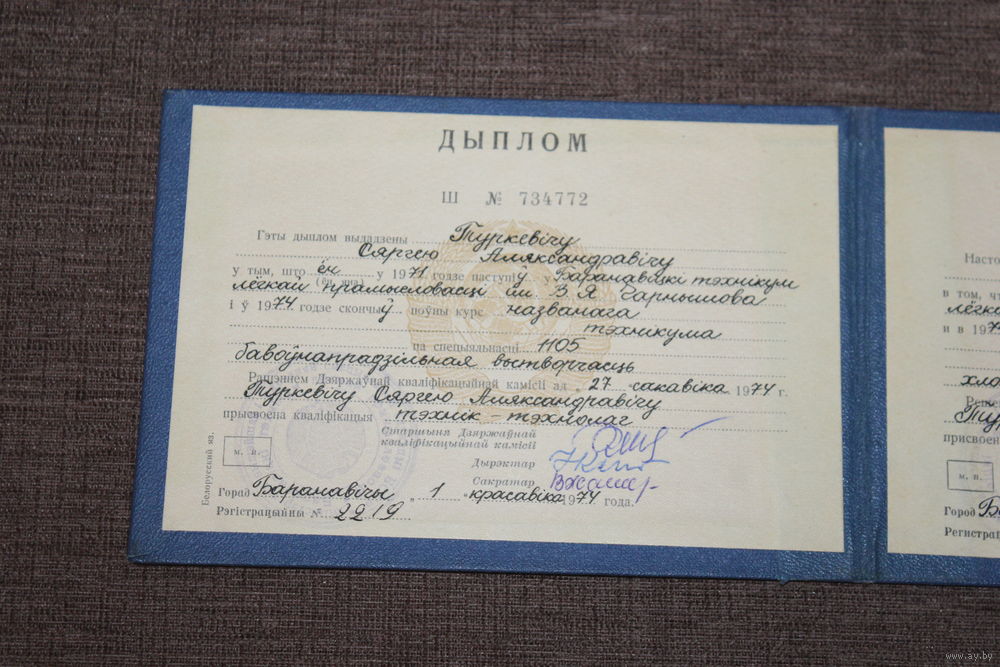 ДЫПЛОМ
Ш № 734772
Гэты дыплом выдадзены Туркевічу
Сяргею Аляксандравічу
у тым, што ён у 1971 годзе паступіў у Баранавіцкі тэхнікум
(ён, яна)
лёгкай прамысловасці ім. В. Я. Чарнышова
і ў 1974 годзе скончыў поўны курс названага
тэхнікума
па спецыяльнасці 1105
бавоўнапрадзільная вытворчасць
Рашэннем Дзяржаўнай кваліфікацыйнай камісіі ад 27 сакавіка 1974 г.
Туркевічу Сяргею Аляксандравічу
прысвоена кваліфікацыя тэхнік-тэхнолаг
Старшыня Дзяржаўнай
кваліфікацыйнай камісіі
Дырэктар
Сакратар
м. п.
Горад Баранавічы „1“ красавіка 1974 года.
Рэгістрацыйны № 2219
Белорусский яз.
Насто
в том, ч
лёгко
и в 197
хло
Реше
Тур
присвоен
м. п.
Город Ба
Регистрац
www.ay.by